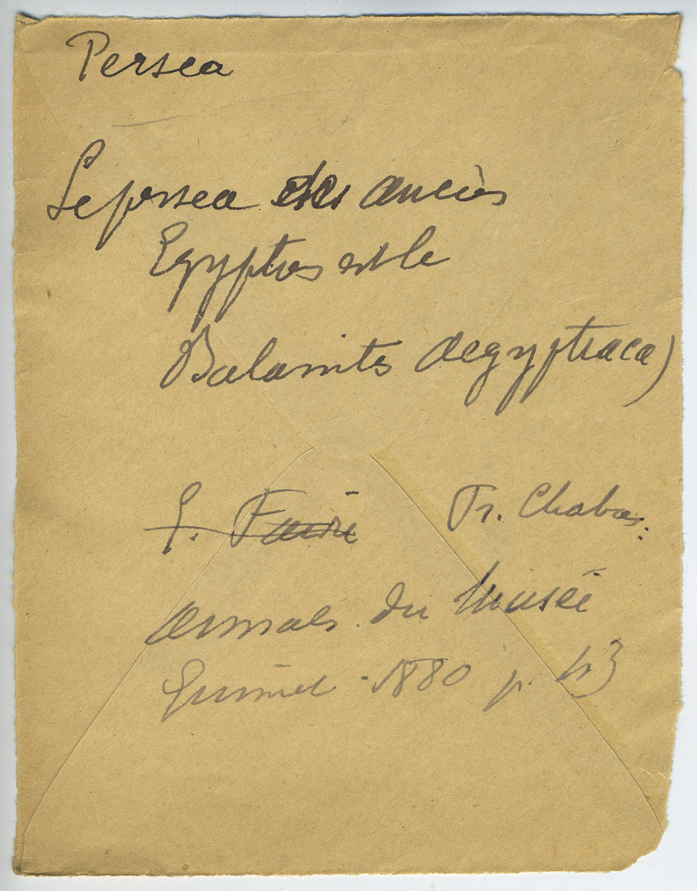 Persea
Le persea des anciès
Egypties est le
Balanites aegyptiaca)
Fr. Chabas:
annales du Musée
Guimet - 1880 p. 43